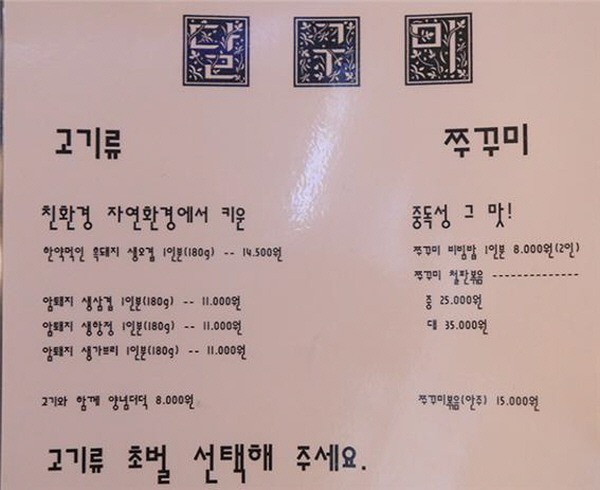 담꾸미
고기류
친환경 자연환경에서 키운
한약먹인 흑돼지 생오겹 1인분(180g) -- 14.500원
암퇘지 생삼겹 1인분(180g) -- 11.000원
암퇘지 생항정 1인분(180g) -- 11.000원
암퇘지 생가브리 1인분(180g) -- 11.000원
고기와 함께 양념더덕 8.000원
고기류 초벌 선택해 주세요.
쭈꾸미
중독성 그 맛!
쭈꾸미 비빔밥 1인분 8.000원(2인)
쭈꾸미 철판볶음 ---------------
중 25.000원
대 35.000원
쭈꾸미볶음(안주) 15.000원